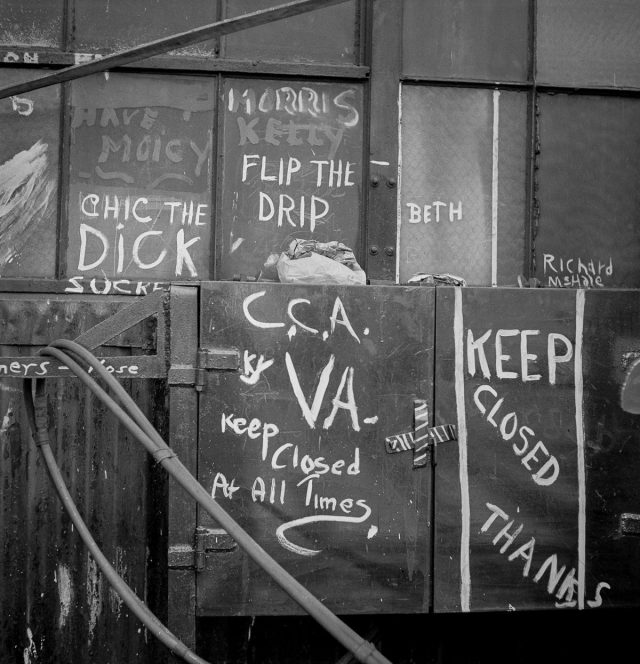 HAVE
MOICY
CHIC THE
DICK
SUCKE
MORRIS
KELLY
FLIP THE
DRIP
BETH
Richard
McHale
ners - Nose
C.C.A.
by
VA.
Keep
Closed
At All Times
KEEP
CLOSED
THANKS